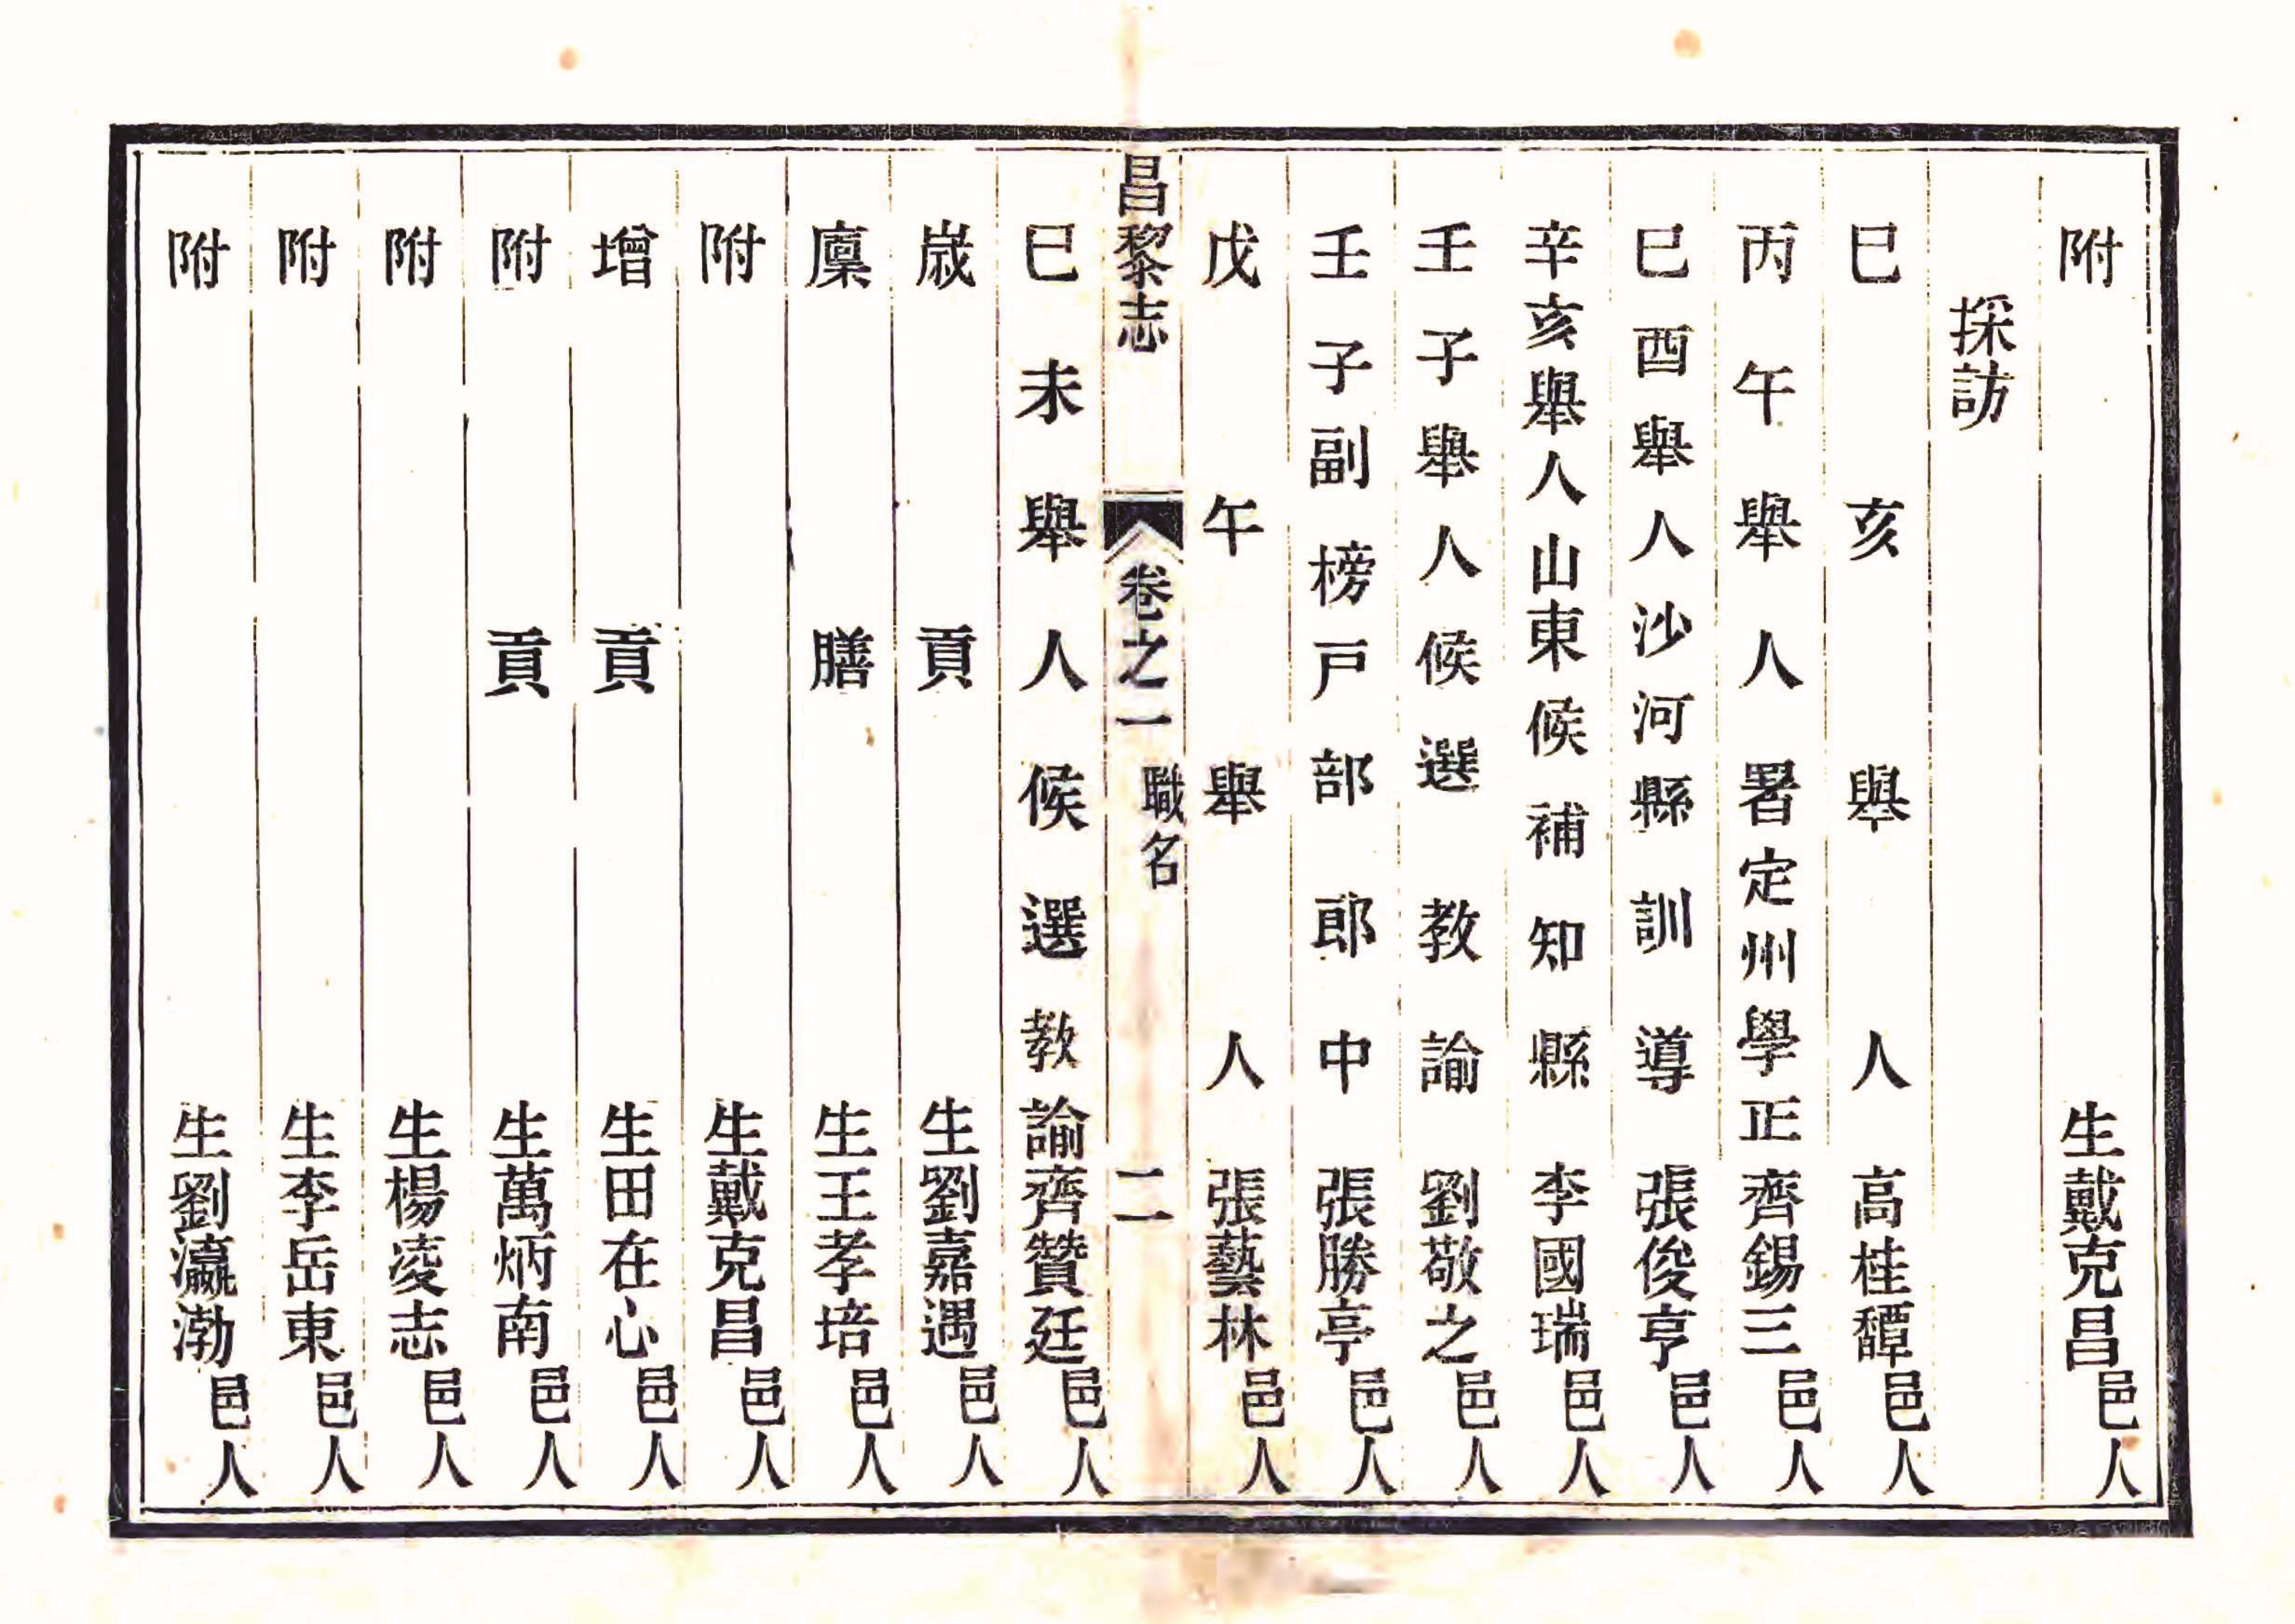 附生戴克昌邑人
採訪
巳亥舉人高桂馨邑人
丙午舉人署定州學正齊錫三邑人
巳酉舉人沙河縣訓導張俊亨邑人
辛亥舉人山東候補知縣李國瑞邑人
壬子舉人候選教諭劉敬之邑人
壬子副榜戸部郎中張勝亭邑人
戊午舉人張藝林邑人
昌黎志 卷之一 職名 二
巳未舉人候選教諭齊贊廷邑人
嵗貢生劉嘉遇邑人
廩膳生王孝培邑人
附生戴克昌邑人
增貢生田在心邑人
附貢生萬炳南邑人
附生楊凌志邑人
附生李岳東邑人
附生劉瀛渤邑人